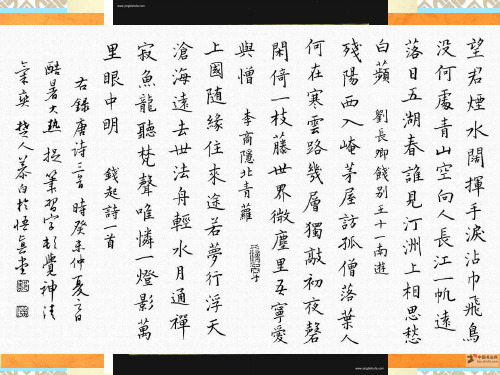 望君煙水闊揮手淚沾巾飛鳥
没何處青山空向人長江一帆遠
落日五湖春誰見汀洲上相思愁
白蘋 劉長卿餞別王十一南遊
殘陽西入崦茅屋訪孤僧落葉人
何在寒雲路幾層獨敲初夜磬
閑倚一枝藤世界微塵里吾寧愛
與憎 李商隱北青蘿
上國隨緣住來途若夢行浮天
滄海遠去世法舟輕水月通禪
寂魚龍聽梵聲唯憐一燈影萬
里眼中明 錢起詩一首
右錄唐詩三首 時癸未仲夏
酷暑大熱 捉筆習字
氣爽 人慕白於悟真堂